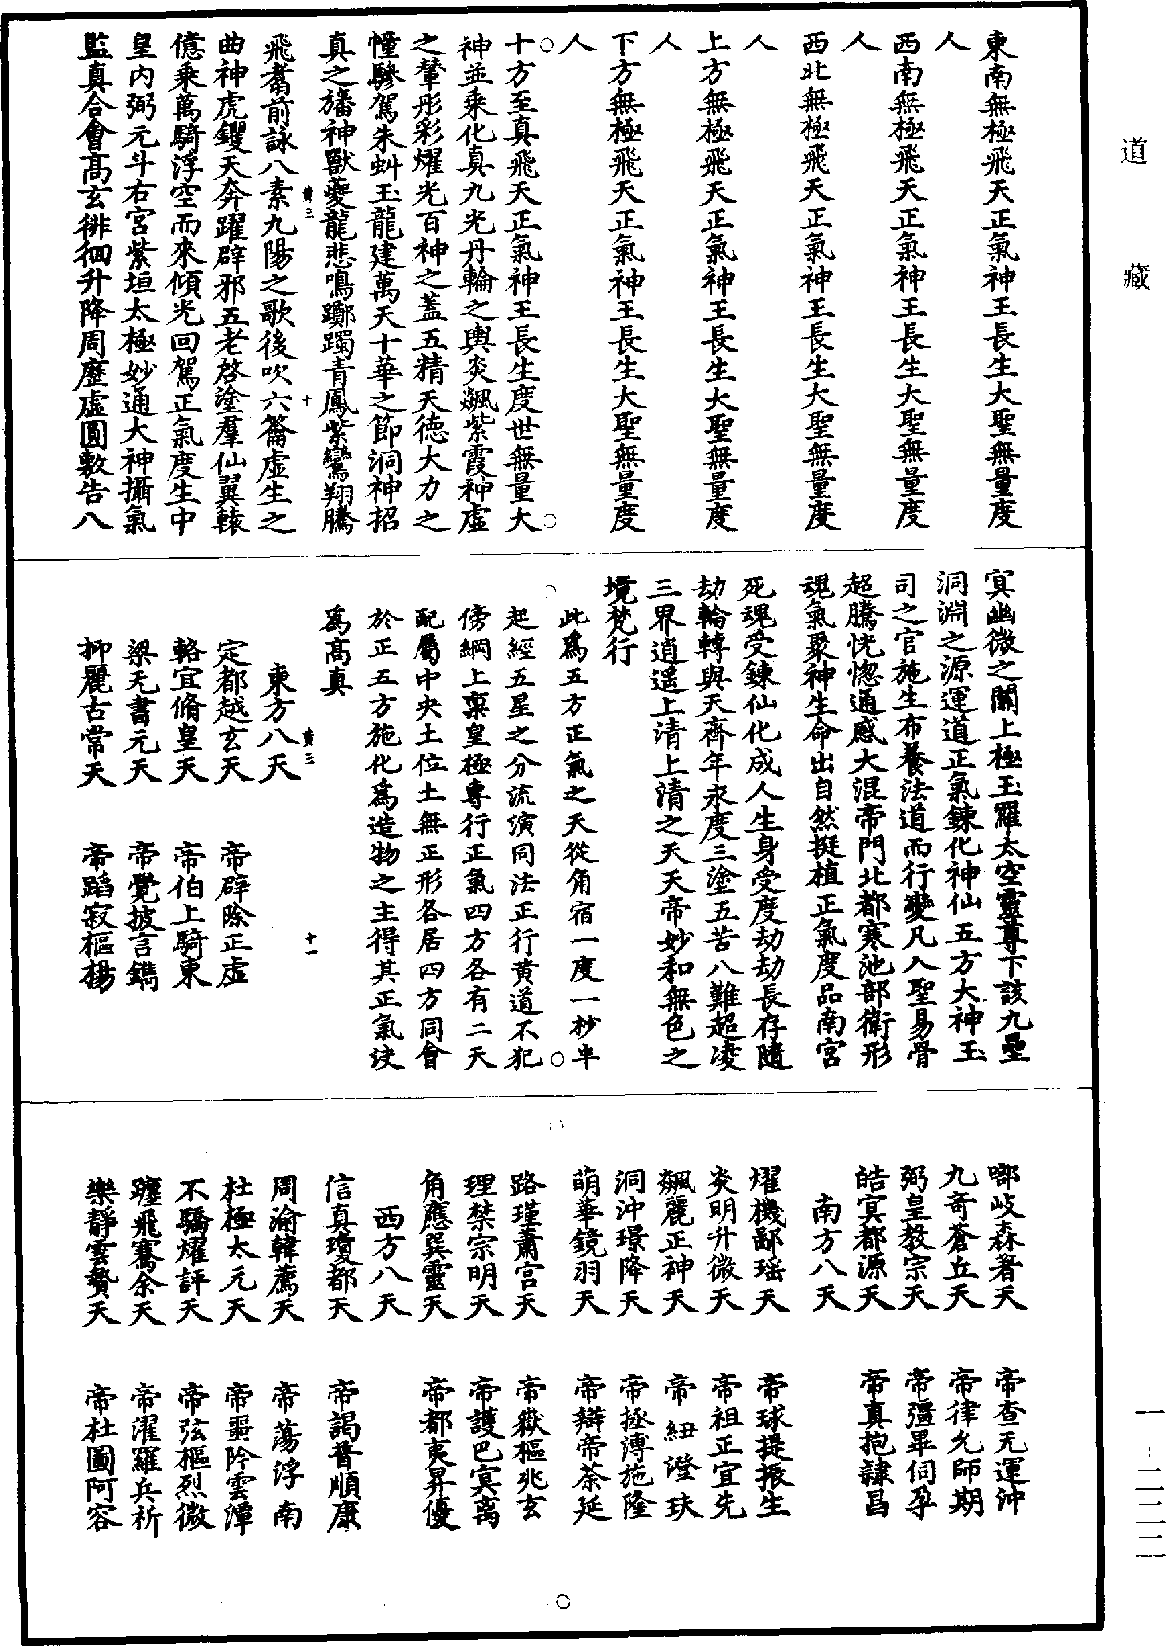 道藏
東南無極飛天正氣神王長生大聖無量度
人
西南無極飛天正氣神王長生大聖無量度
人
西北無極飛天正氣神王長生大聖無量度
人
上方無極飛天正氣神王長生大聖無量度
人
下方無極飛天正氣神王長生大聖無量度
人
十方至真飛天正氣神王長生度世無量大
神並乘化真九光丹輪之輿炎飆紫霞神虛
之輦彤彩燿光百神之蓋五精天德大力之
幢驂駕朱虯玉龍建萬天十華之節洞神招
真之旛神獸夔龍悲鳴躑躅青鳳紫鸞翔騰
飛翥前詠八素九陽之歌後吹六籥虛生之
黃三 十
曲神虎钁天奔躍辟邪五老啓塗羣仙翼轅
億乘萬騎浮空而來傾光回駕正氣度生中
皇內弼元斗右宮紫垣太極妙通大神攝氣
監真合會高玄徘徊升降周歷虛圓敷告八
冥幽微之關上極玉羅太空靈尊下該九壘
洞淵之源運道正氣鍊化神仙五方大神玉
司之官施生布養法道而行變凡入聖易骨
超騰恍惚通感大混帝門北都寒池部衛形
魂氣聚神生命出自然挺植正氣度品南宮
死魂受鍊仙化成人生身受度劫劫長存隨
劫輪轉與天齊年永度三塗五苦八難超凌
三界逍遙上清上清之天天帝妙和無色之
境梵行
此為五方正氣之天從角宿一度一杪半
起經五星之分流演同法正行黃道不犯
傍綱上稟皇極專行正氣四方各有二天
配屬中央土位土無正形各居四方同會
於正五方施化為造物之主得其正氣決
為高真
東方八天
黃三 十一
定都越玄天 帝辟除正虛
輅宜脩皇天 帝伯上騎東
梁无書元天 帝覺披言鐫
抑麗古常天 帝蹈寂樞楊
啷岐森署天 帝查无運沖
九奇蒼丘天 帝律允師期
弼皇教宗天 帝彊畢伺孕
皓冥都源天 帝真抱隷昌
南方八天
燿機鄙瑶天 帝球提振生
炎明升微天 帝祖正宜先
飆麗正神天 帝紐澄玞
洞沖璟降天 帝拯溥施隆
萌華鏡羽天 帝辯帝荼延
路瑾肅宮天 帝嶽樞兆玄
理禁宗明天 帝護巴冥离
角應巽靈天 帝都夷昇優
西方八天
信真瓊都天 帝謁晉順康
周淪韓薦天 帝蕩浮南
杜極太元天 帝噩昑雲潭
不驕燿評天 帝弦樞烈微
躔飛騫余天 帝濯羅兵祈
樂靜雲贄天 帝杜圖阿容
一－二二二